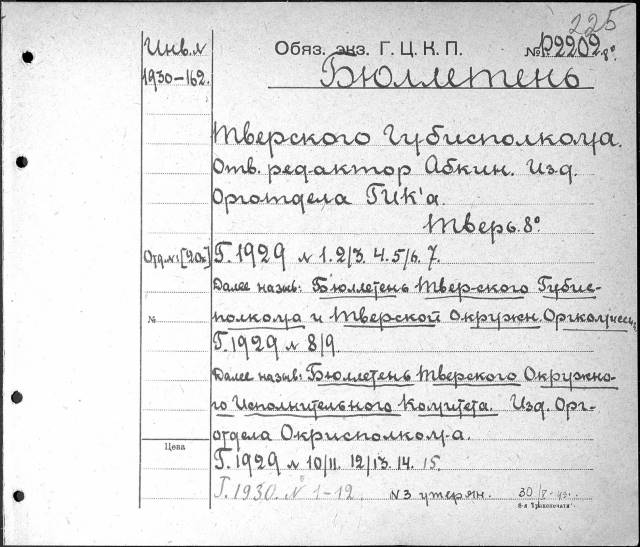 225
Инв. №
Обяз. экз. Г. Ц. К. П.
№ Р2202 8°
1930-162.
Бюллетень
Тверского Губисполкома.
Отв. редактор Абкин. Изд.
Орготдела ГИК'а.
Тверь. 8°
Г. 1929 № 1. 2/3. 4. 5/6. 7.
Далее назыв: Бюллетень Тверского Губис-
№
полкома и Тверской Окружн. Оргкомиссии
Г. 1929 № 8/9.
Далее назыв: Бюллетень Тверского Окружно-
го Исполнительного Комитета. Изд. Орг-
отдела Окрисполком-а.
Цена
Г. 1929 № 10/11. 12/13. 14. 15.
Г. 1930. № 1-12. №3 утерян. 30/